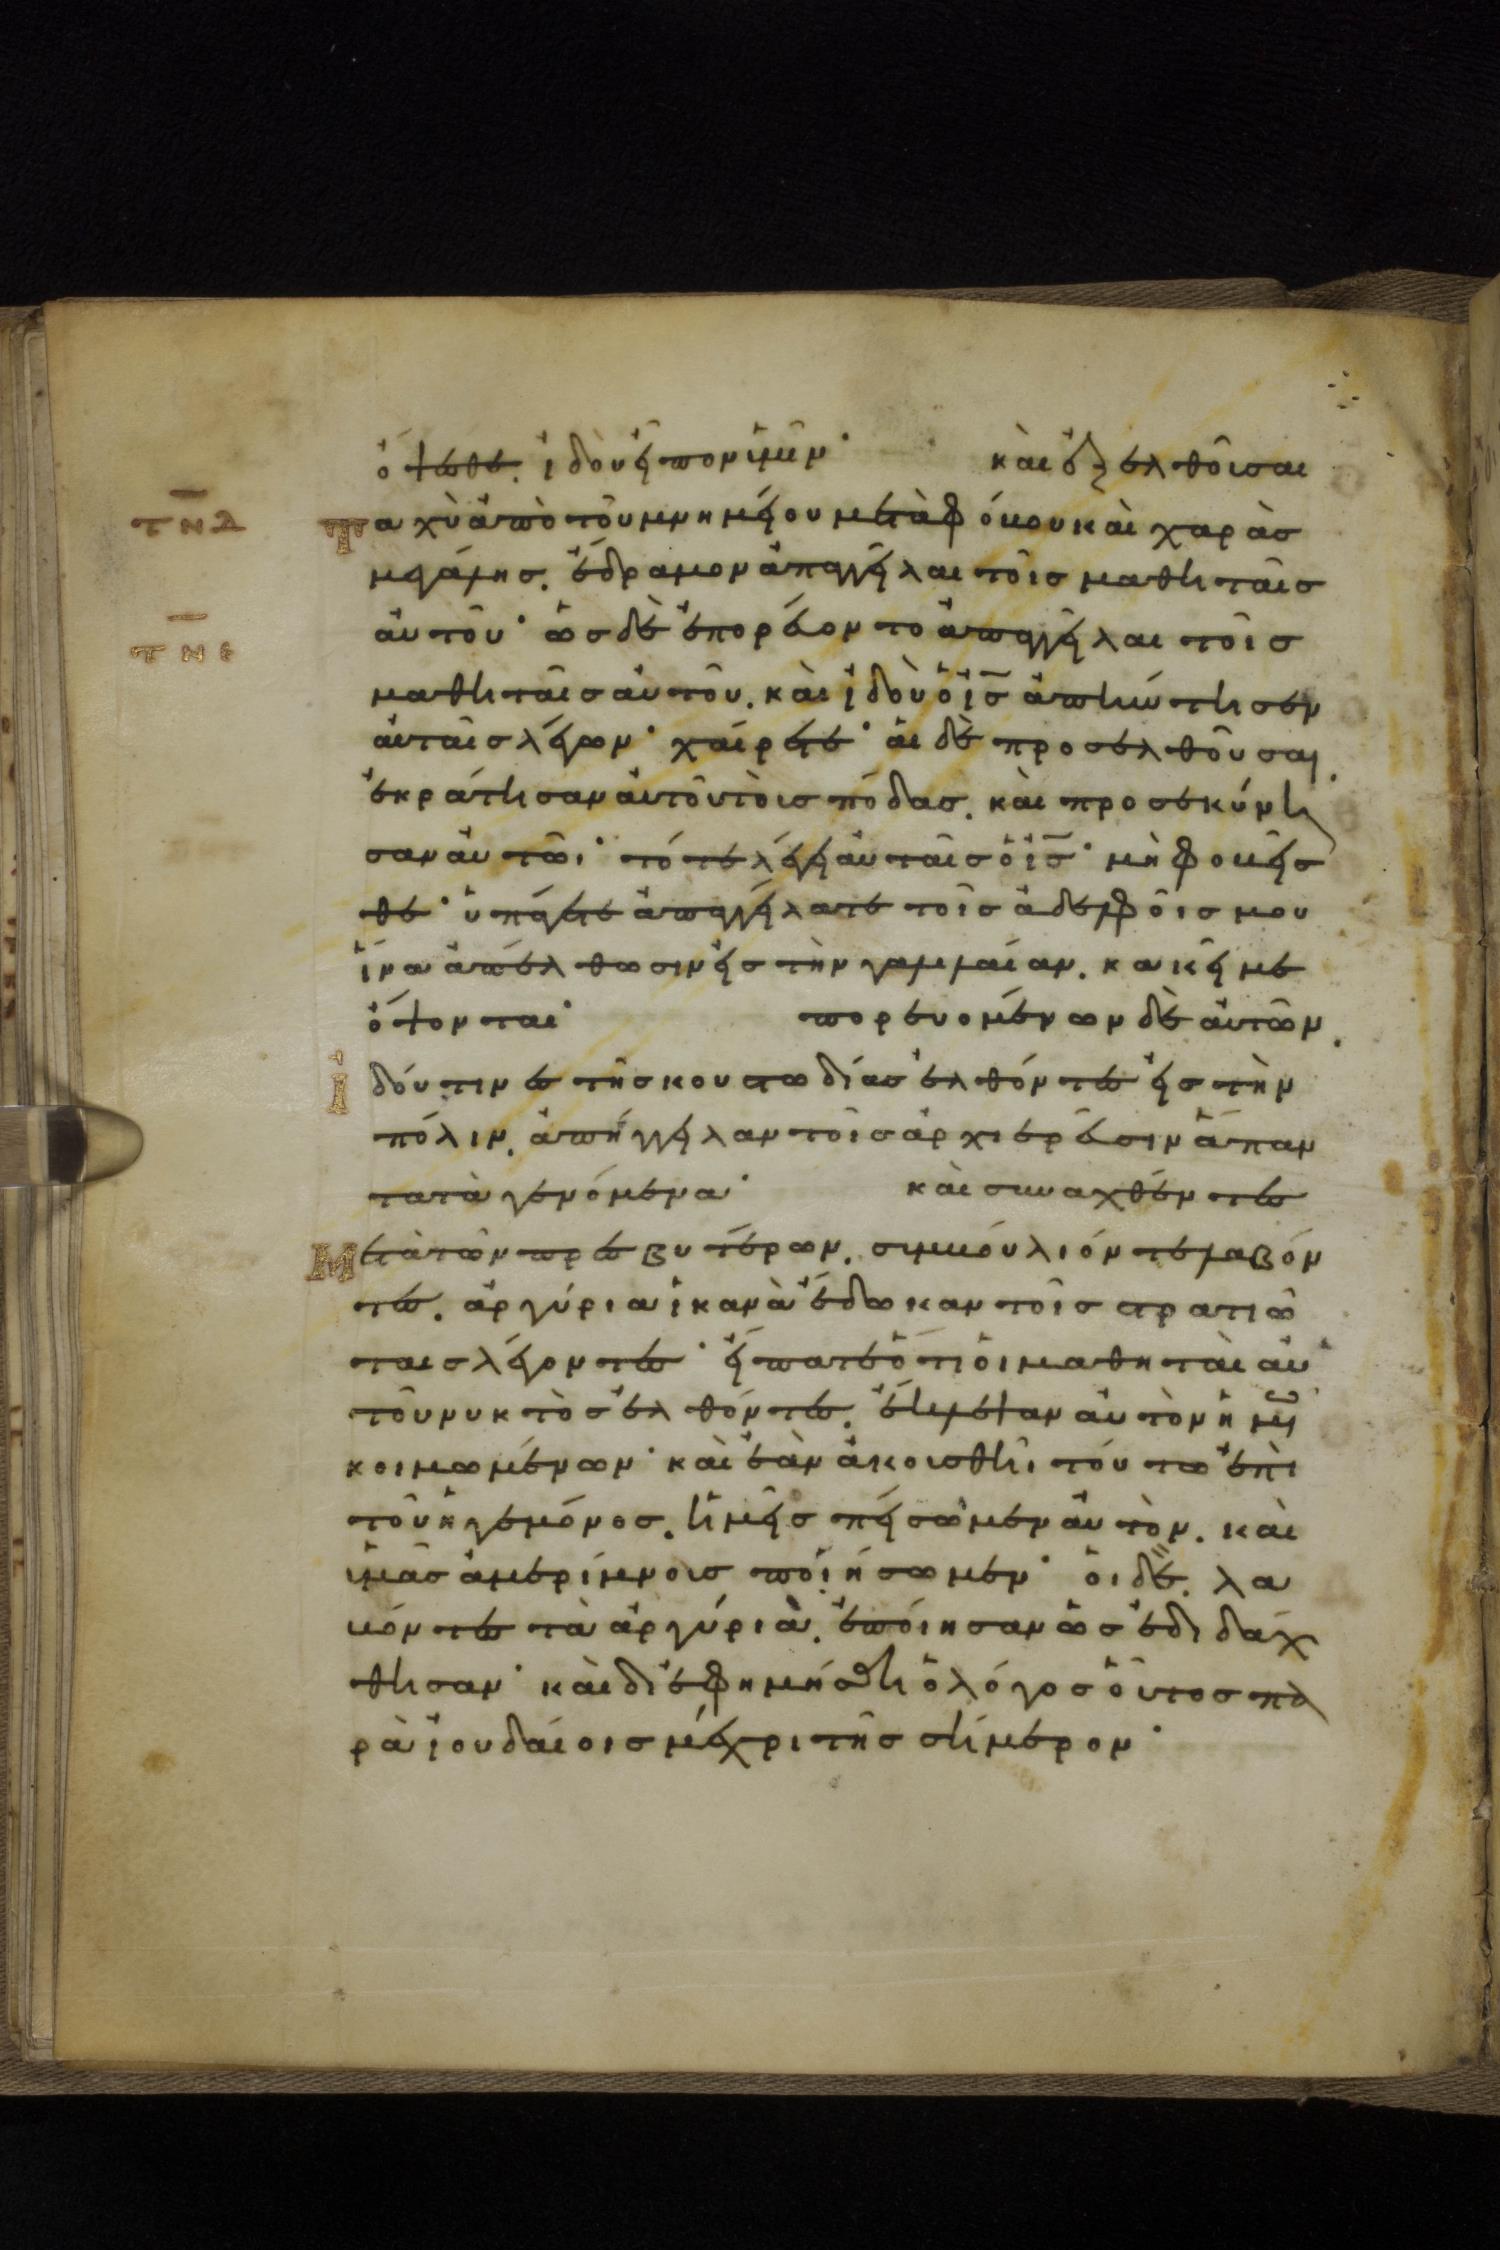 ὄψεσθε. ἰδοὺ εἶπον ὑμῖν· καὶ ἐξελθοῦσαι
τνδ ταχὺ ἀπὸ τοῦ μνημείου μετὰ φόβου καὶ χαρᾶς
μεγάλης. ἔδραμον ἀπαγγεῖλαι τοῖς μαθηταῖς
αὐτοῦ· ὡς δὲ ἐπορεύοντο ἀπαγγεῖλαι τοῖς
τνε
μαθηταῖς αὐτοῦ. καὶ ἰδοὺ ὁ ις ἀπήντησεν
αὐταῖς λέγων· χαίρετε· αἱ δὲ προσελθοῦσαι.
ἐκράτησαν αὐτοῦ τοὺς πόδας. καὶ προσεκύνη
σαν αὐτῶι· τότε λέγει αὐταῖς ὁ ις· μὴ φοβεῖσ
θε· ὑπάγετε ἀπαγγείλατε τοῖς ἀδελφοῖς μου
ἵνα ἀπέλθωσιν εἰς τὴν γαλιλαίαν. κακεῖ με
ὄψονται· πορευομένων δὲ αὐτῶν.
ἰδού τινες τῆς κουστωδίας ἐλθόντες εἰς τὴν
πόλιν. ἀπήγγειλαν τοῖς ἀρχιερεῦσιν ἅπαν
τα τὰ γενόμενα· καὶ συναχθέντες
μετὰ τῶν πρεσβυτέρων. συμβούλιόν τε λαβόν
τες. ἀργύρια ἱκανὰ ἔδωκαν τοῖς στρατιώ
ταις λέγοντες· εἴπατε ὅτι οἱ μαθηταὶ αὐ
τοῦ νυκτὸς ἐλθόντες. ἔκλεψαν αὐτὸν ἡμῶν
κοιμωμένων· καὶ ἐὰν ἀκουσθῆι τοῦτο ἐπὶ
τοῦ ἡγεμόνος. ἡμεῖς πείσωμεν αὐτὸν. καὶ
ὑμᾶς ἀμερίμνους ποιήσωμεν· οἱ δὲ. λα
βόντες τὰ ἀργύρια. ἐποίησαν ὡς ἐδιδάχ
θησαν· καὶ διεφημίσθη ὁ λόγος οὗτος πα
ρὰ ἰουδαίοις μέχρι τῆς σήμερον·